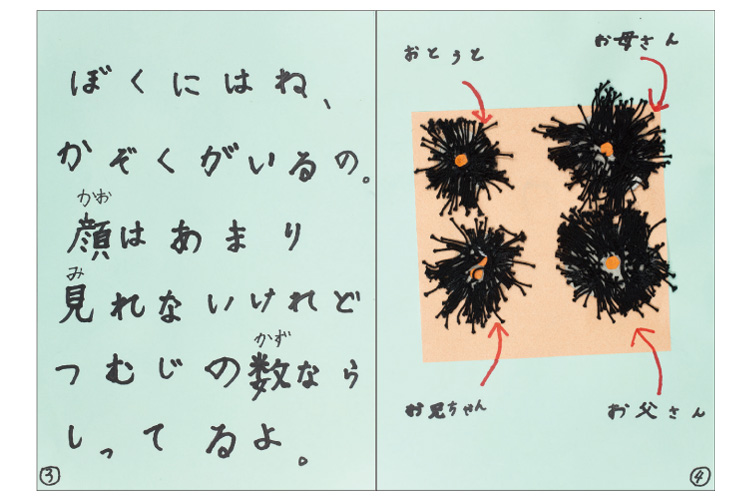 ぼくにはね、
かぞくがいるの。
かお
顔はあまり
み
見れないけれど
かず
つむじの数なら
しってるよ。
③
おとうと
お母さん
お兄ちゃん
お父さん
④